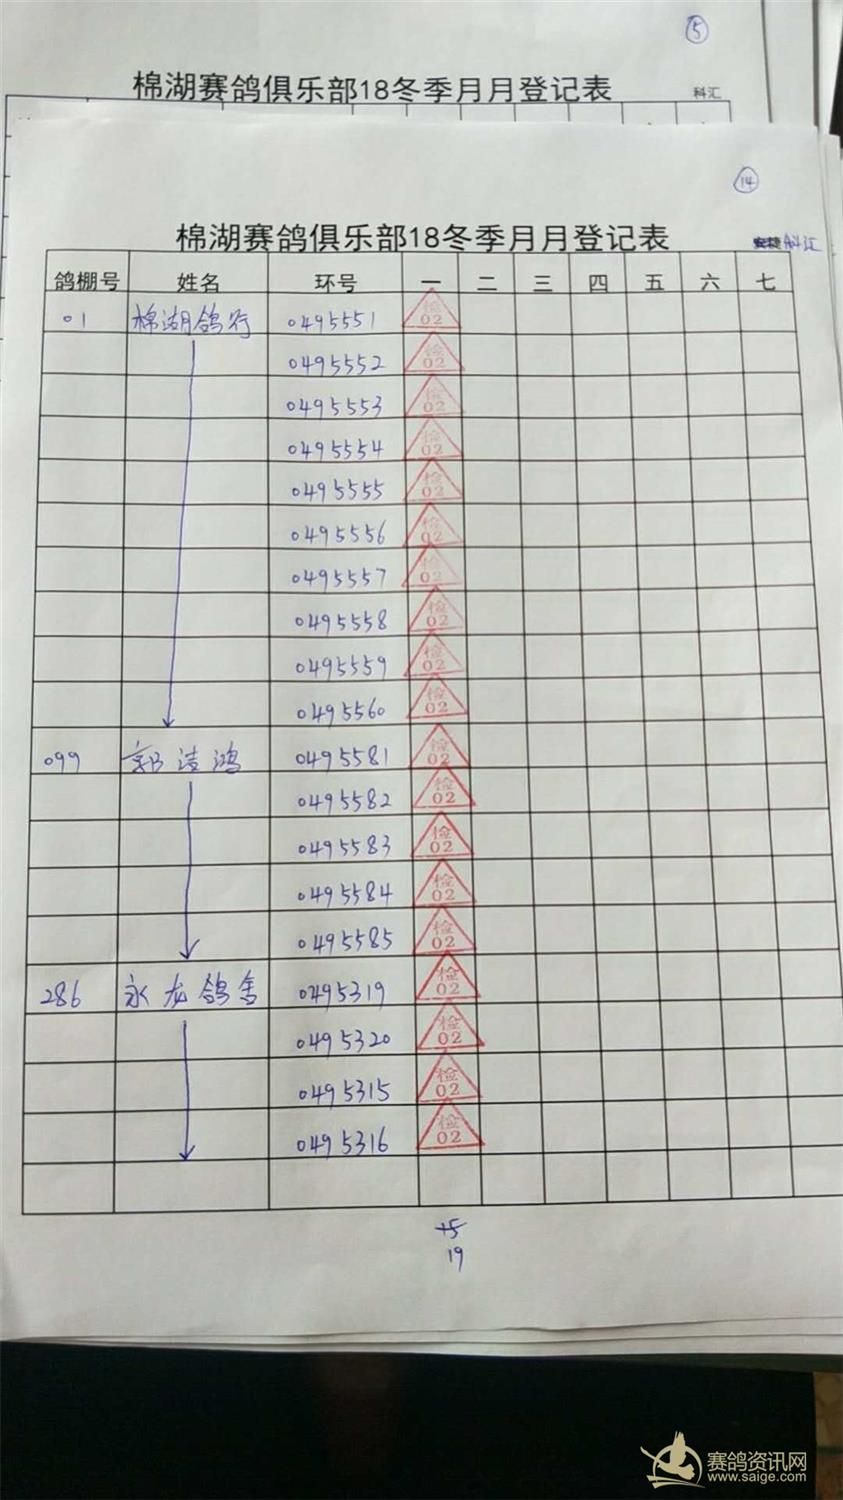 ⑤
棉湖赛鸽俱乐部18冬季月月登记表 科汇
⑭
棉湖赛鸽俱乐部18冬季月月登记表 科汇
鸽棚号 姓名 环号 一 二 三 四 五 六 七
01 棉湖鸽行 0495551 检 02
0495552 检 02
0495553 检 02
0495554 检 02
0495555 检 02
0495556 检 02
0495557 检 02
0495558 检 02
0495559 检 02
0495560 检 02
099 郭洁鸿 0495581 检 02
0495582 检 02
0495583 检 02
0495584 检 02
0495585 检 02
286 永龙鸽舍 0495319 检 02
0495320 检 02
0495315 检 02
0495316 检 02
19
赛鸽资讯网
www.saige.com